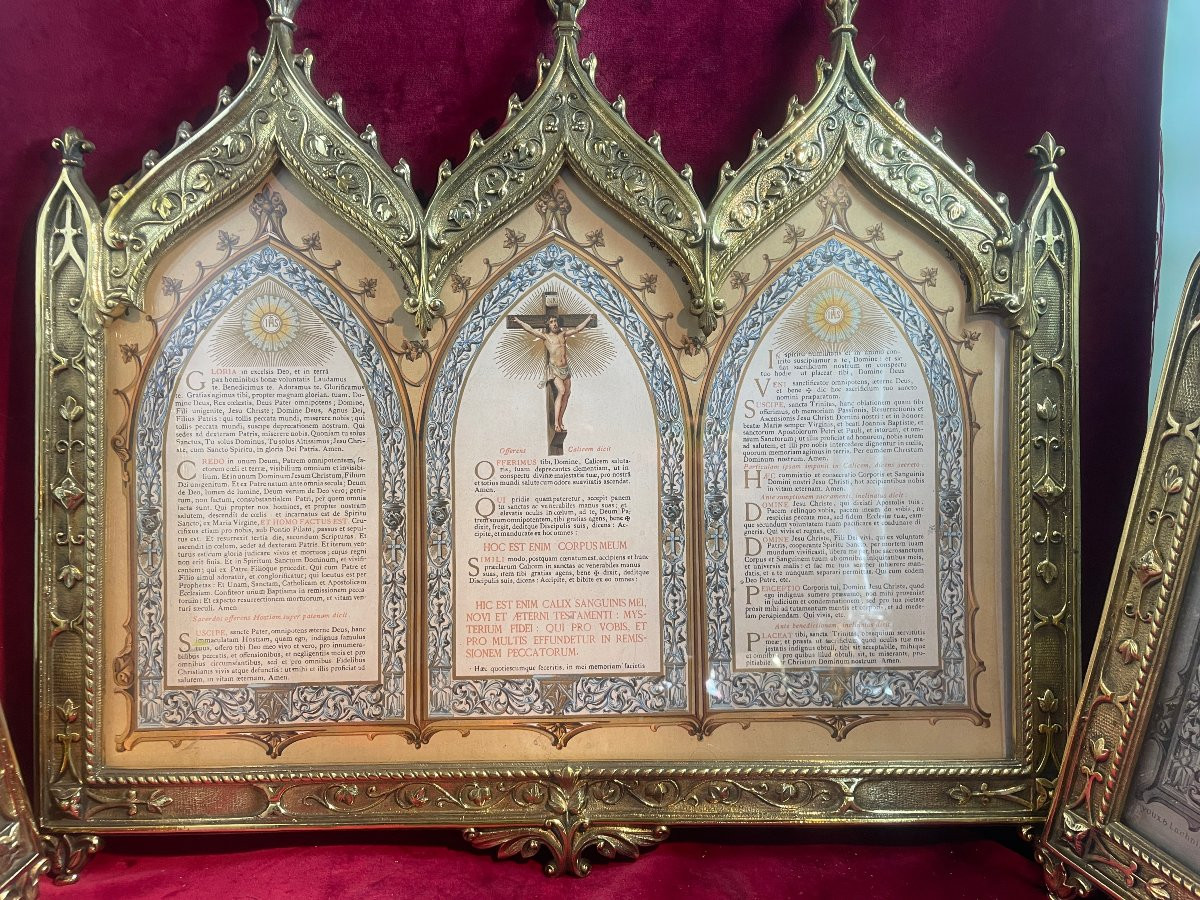 IHS
GLORIA in excelsis Deo, et in terra
pax hominibus bonæ voluntatis Laudamus
te. Benedicimus te. Adoramus te. Glorificamus
te. Gratias agimus tibi, propter magnam gloriam tuam. Do-
mine Deus, Rex cœlestis, Deus Pater omnipotens; Domine,
Fili unigenite, Jesu Christe; Domine Deus, Agnus Dei,
Filius Patris: qui tollis peccata mundi, miserere nobis; qui
tollis peccata mundi, suscipe deprecationem nostram. Qui
sedes ad dexteram Patris, miserere nobis. Quoniam tu solus
Sanctus, Tu solus Dominus, Tu solus Altissimus, Jesu Chri-
ste, cum Sancto Spiritu, in gloria Dei Patris. Amen.
CREDO in unum Deum, Patrem omnipotentem, fa-
ctorem cœli et terræ, visibilium omnium et invisibi-
lium. Et in unum Dominum Jesum Christum, Filium
Dei unigenitum. Et ex Patre natum ante omnia sæcula; Deum
de Deo, lumen de lumine, Deum verum de Deo vero; geni-
tum, non factum, consubstantialem Patri, per quem omnia
facta sunt. Qui propter nos homines, et propter nostram
salutem, descendit de cœlis et incarnatus est de Spiritu
Sancto, ex Maria Virgine, ET HOMO FACTUS EST. Cru-
cifixus etiam pro nobis, sub Pontio Pilato, passus et sepul-
tus est. Et resurrexit tertia die, secundum Scripturas. Et
ascendit in cœlum, sedet ad dexteram Patris. Et iterum ven-
turus est cum gloria judicare vivos et mortuos; cujus regni
non erit finis. Et in Spiritum Sanctum, Dominum, et vivifi-
cantem; qui ex Patre Filioque procedit. Qui cum Patre et
Filio simul adoratur, et conglorificatur; qui locutus est per
Prophetas. Et Unam, Sanctam, Catholicam et Apostolicam
Ecclesiam. Confiteor unum Baptisma in remissionem pecca-
torum. Et expecto resurrectionem mortuorum, et vitam ven-
turi sæculi. Amen
Sacerdos offerens Hostiam super patenam dicit
SUSCIPE, sancte Pater, omnipotens æterne Deus, hanc
immaculatam Hostiam, quam ego, indignus famulus
tuus, offero tibi Deo meo vivo et vero, pro innumera-
bilibus peccatis, et offensionibus, et negligentiis meis et pro
omnibus circumstantibus, sed et pro omnibus Fidelibus
Christianis vivis atque defunctis: ut mihi et illis proficiat ad
salutem, in vitam æternam. Amen.
Offerens Calicem dicit
OFFERIMUS tibi, Domine, Calicem saluta-
ris, tuam deprecantes clementiam, ut in
conspectu divinæ majestatis tuæ, pro nostra
et totius mundi salute cum odore suavitatis ascendat.
Amen.
QUI pridie quam pateretur, accepit panem
in sanctas ac venerabiles manus suas; et
elevatis oculis in cœlum, ad te, Deum Pa-
trem suum omnipotentem, tibi gratias agens, bene ✠
dixit, fregit, deditque Discipulis suis, dicens: Ac-
cipite, et manducate ex hoc omnes:
HOC EST ENIM CORPUS MEUM
SIMILI modo, postquam cœnatum est, accipiens et hunc
præclarum Calicem in sanctas ac venerabiles manus
suas, item tibi gratias agens, bene ✠ dixit, deditque
Discipulis suis, dicens: Accipite, et bibite ex eo omnes:
HIC EST ENIM CALIX SANGUINIS MEI,
NOVI ET ÆTERNI TESTAMENTI: MYS-
TERIUM FIDEI: QUI PRO VOBIS, ET
PRO MULTIS EFFUNDETUR IN REMIS-
SIONEM PECCATORUM.
Hæc quotiescumque feceritis, in mei memoriam facietis
IHS
IN spiritu humilitatis et in animo con-
trito suscipiamur a te, Domine: et sic
fiat sacrificium nostrum in conspectu
tuo hodie, ut placeat tibi, Domine Deus
VENI sanctificator omnipotens, æterne Deus,
et bene ✠ dic hoc sacrificium tuo sancto
nomini præparatum.
SUSCIPE, sancta Trinitas, hanc oblationem quam tibi
offerimus, ob memoriam Passionis, Resurrectionis et
Ascensionis Jesu Christi Domini nostri: et in honore
beatæ Mariæ semper Virginis, et beati Joannis Baptistæ, et
sanctorum Apostolorum Petri et Pauli, et istorum, et om-
nium Sanctorum; ut illis proficiat ad honorem, nobis autem
ad salutem, et illi pro nobis intercedere dignentur in cœlis,
quorum memoriam agimus in terris. Per eumdem Christum
Dominum nostrum. Amen.
Particulam ipsam immittit in Calicem, dicens secreto.
HÆC commixtio et consecratio Corporis et Sanguinis
Domini nostri Jesu Christi, fiat accipientibus nobis
in vitam æternam. Amen.
Ante sumptionem sacramenti, inclinatus dicit
DOMINE Jesu Christe, qui dixisti Apostolis tuis,
Pacem relinquo vobis, pacem meam do vobis, ne
respicias peccata mea, sed fidem Ecclesiæ tuæ, eam-
que secundum voluntatem tuam pacificare et coadunare di-
gneris. Qui vivis et regnas, etc.
DOMINE Jesu Christe, Fili Dei vivi, qui ex voluntate
Patris, cooperante Spiritu Sancto, per mortem tuam
mundum vivificasti, libera me per hoc sacrosanctum
Corpus et Sanguinem tuum ab omnibus iniquitatibus meis,
et universis malis: et fac me tuis semper inhærere man-
datis, et a te nunquam separari permittas. Qui cum eodem
Deo Patre, etc.
PERCEPTIO Corporis tui, Domine Jesu Christe, quod
ego indignus sumere præsumo, non mihi proveniat
in judicium et condemnationem; sed pro tua pietate
prosit mihi ad tutamentum mentis et corporis, et ad mede-
lam percipiendam. Qui vivis, etc.
Ante benedictionem, inclinatus dicit
PLACEAT tibi, sancta Trinitas, obsequium servitutis
meæ; et præsta ut sacrificium quod oculis tuæ ma-
jestatis indignus obtuli, tibi sit acceptabile, mihique
et omnibus pro quibus illud obtuli, sit, te miserante, pro-
pitiabile. Per Christum Dominum nostrum. Amen.